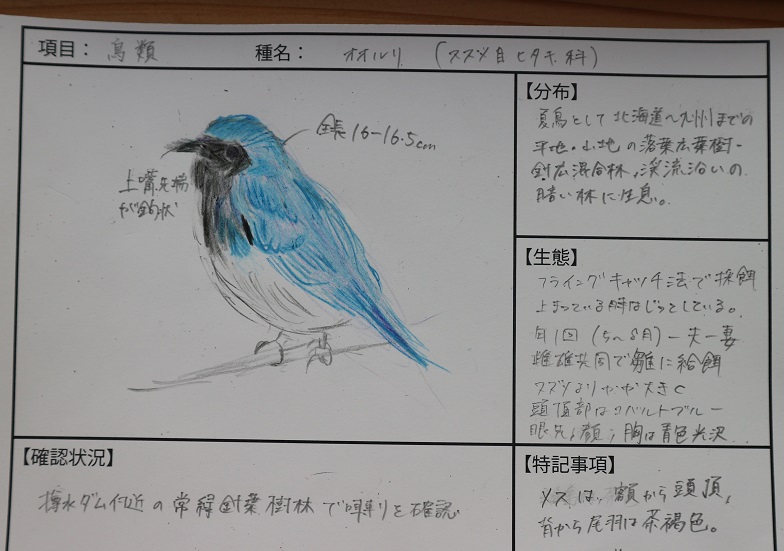 項目： 鳥類
種名： オオルリ (スズメ目 ヒタキ科)
全長16-16.5cm
上嘴先端
が鉤状
【分布】
夏鳥として北海道～九州までの
平地・山地の落葉広葉樹・
針広混合林、渓流沿いの
暗い林に生息。
【生態】
フライングキャッチ法で採餌
止まっている時はじっとしている。
年1回 (5～8月) 一夫一妻
雌雄共同で雛に給餌
スズメよりやや大きく
頭頂部はコバルトブルー
眼先、顔、胸は青色光沢
【確認状況】
ダム付近の常緑針葉樹林で囀りを確認
【特記事項】
メスは、額から頭頂、
背から尾羽は茶褐色。